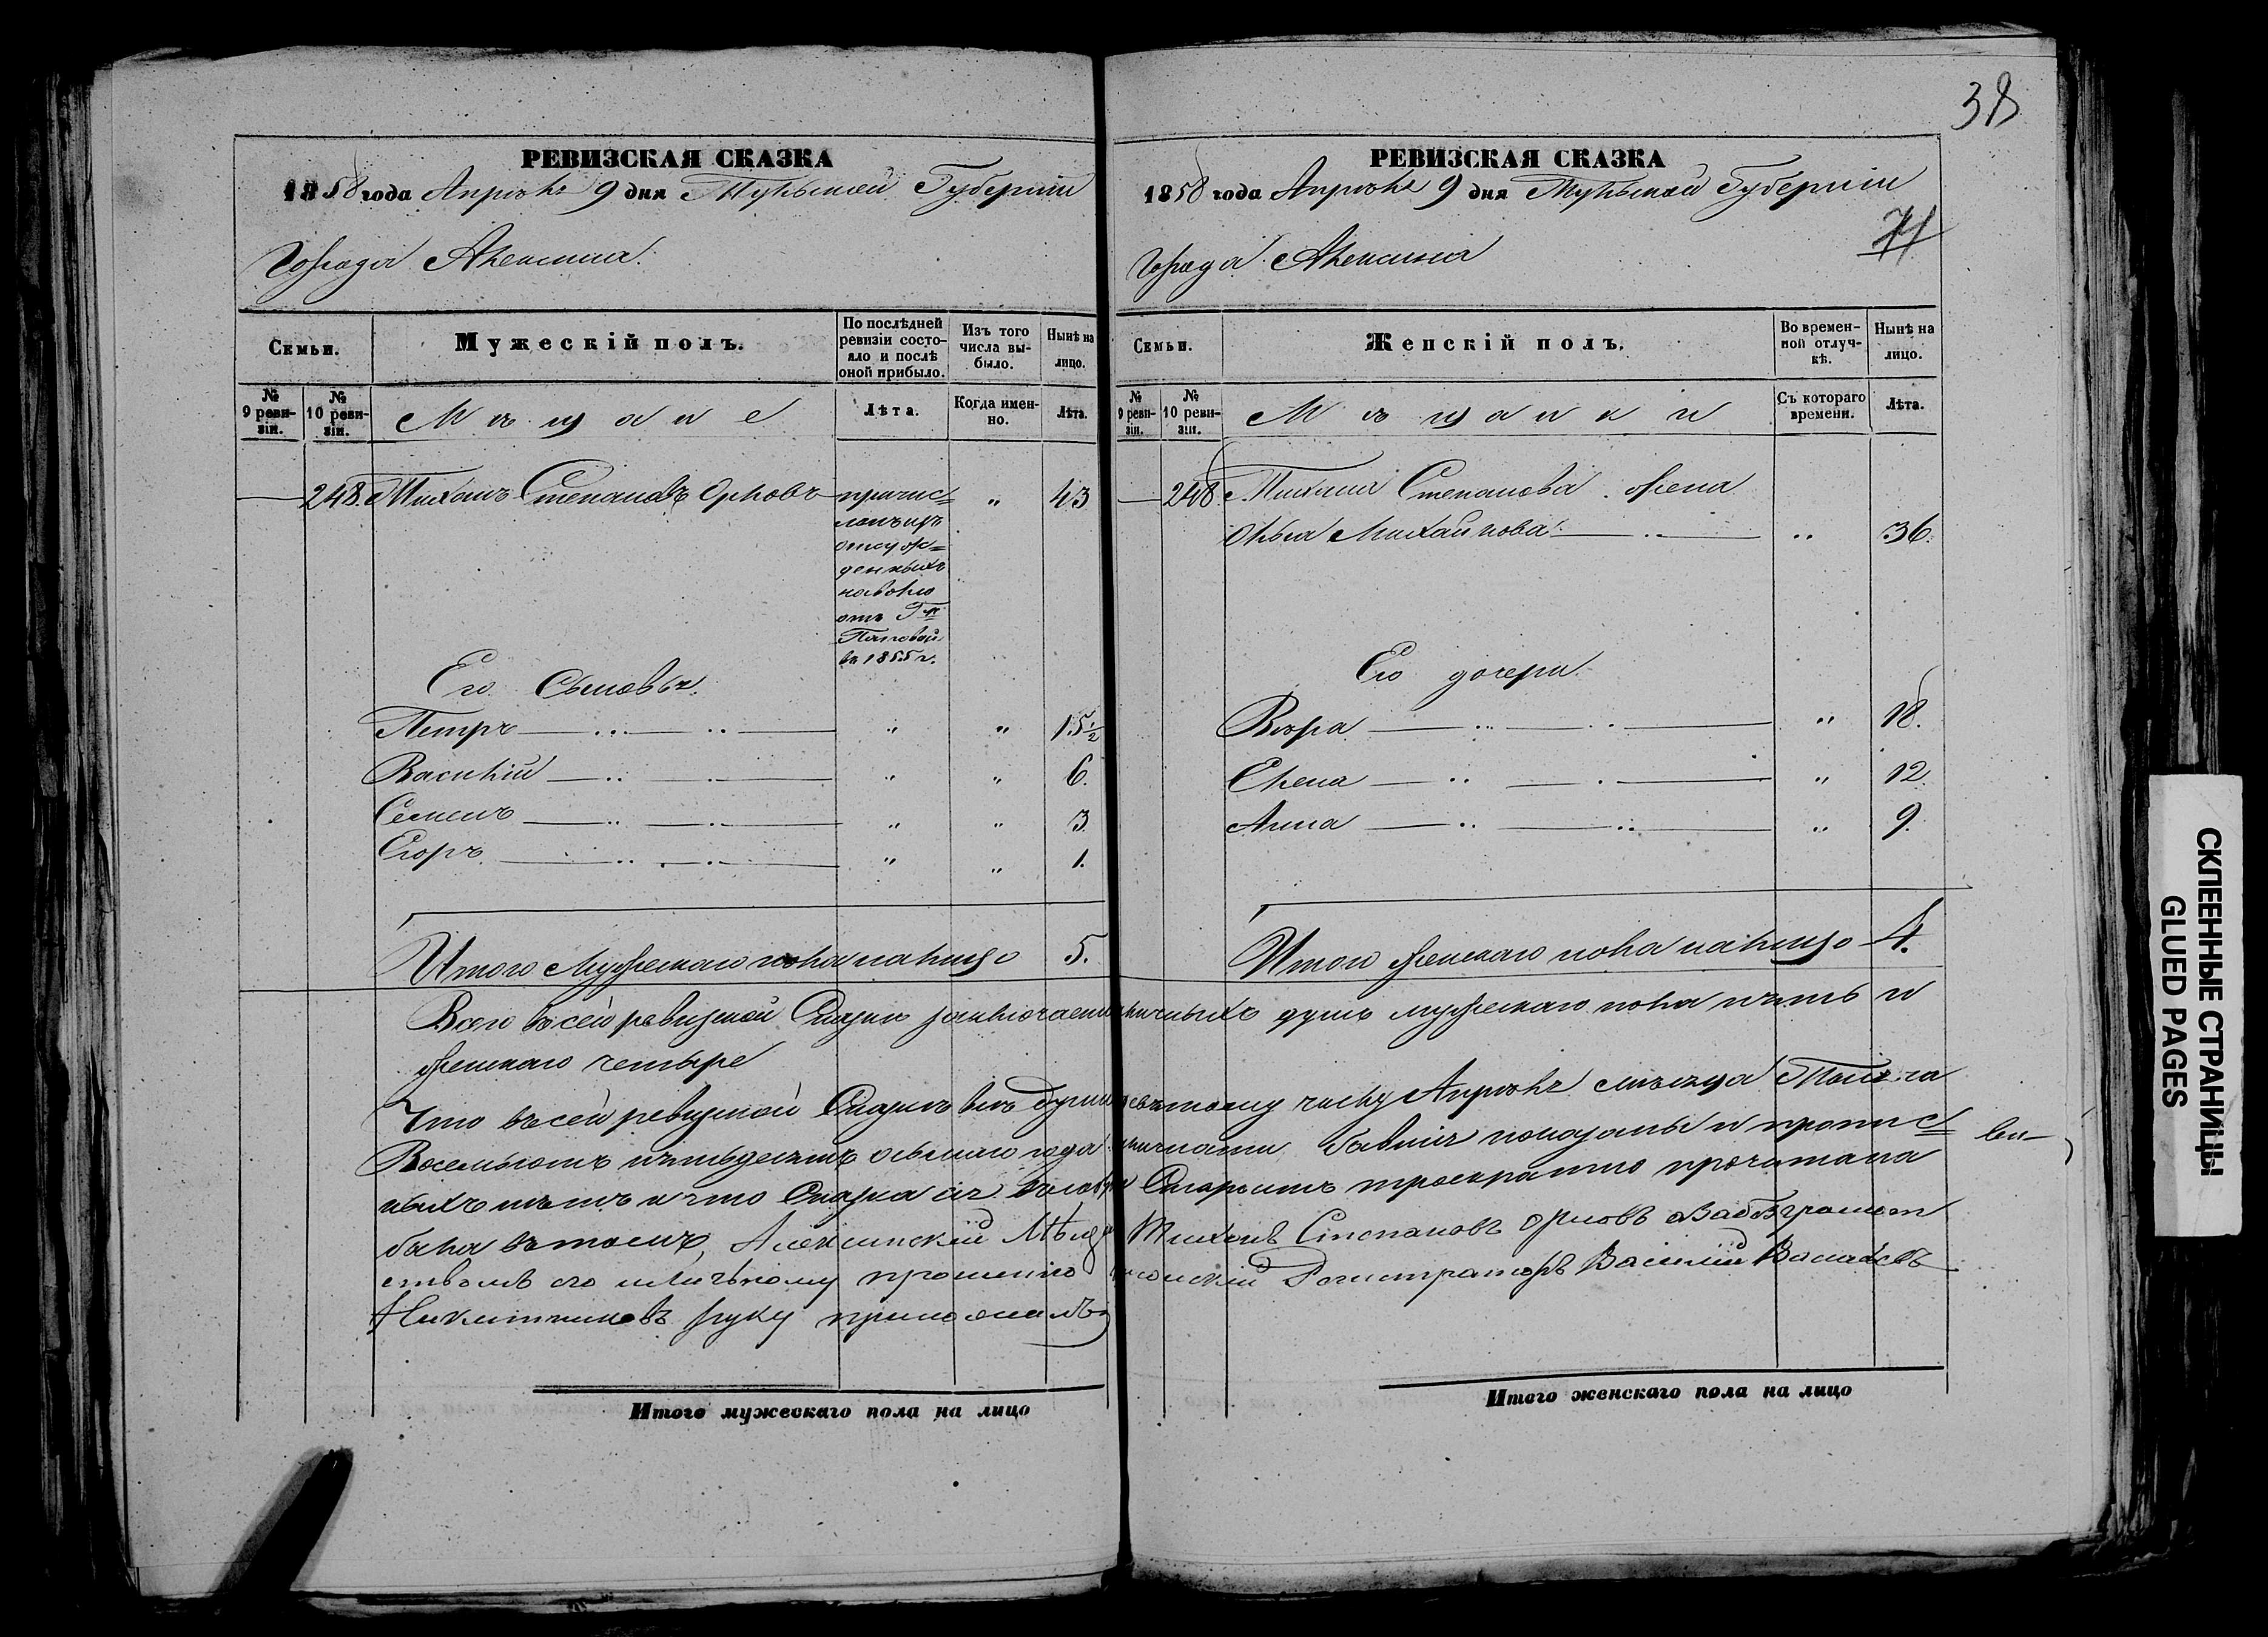 38
РЕВИЗСКАЯ СКАЗКА
1858 года Апрѣля 9 дня Тульской Губерніи
Города Алексина.
Семьи.
Мужескій полъ.
По послѣдней ревизіи состояло и послѣ оной прибыло.
Изъ того числа выбыло.
Нынѣ на лицо.
№ 9 ревизіи.
№ 10 ревизіи.
Мѣщане
Лѣта.
Когда именно.
Лѣта.
248. Тихонъ Степановъ Орловъ
причис=
ленъ изъ
отсуж=
денныхъ
на волю
отъ Г-жи
въ 1855 г.
" 43
Его Сыновья.
Петръ " " 15½
Василій " " 6.
Семенъ " " 3.
Егоръ " " 1.
Итого Мужескаго пола на лицо 5.
РЕВИЗСКАЯ СКАЗКА
1858 года Апрѣля 9 дня Тульской Губерніи
71
Города Алексина
Семьи.
Женскій полъ.
Во временной отлучкѣ.
Нынѣ на лицо.
№ 9 ревизіи.
№ 10 ревизіи.
Мѣщанки
Съ котораго времени.
Лѣта.
248. Тихона Степанова жена
Ольга Михайлова " 36.
Его дочери
Вѣра " 18.
Елена " 12.
Анна " 9.
Итого женскаго пола на лицо 4.
Всего въ сей ревизской Сказкѣ заключается наличныхъ душъ мужескаго пола пять и
женскаго четыре
Что въ сей ревизской Сказкѣ всѣ души къ девятому числу Апрѣля мѣсяца Тысяча
Восемьсотъ пятьдесятъ осьмаго года на лицо бывшія показаны и пропис=
ныхъ нѣтъ и что Сказка сія троекратно прочитана
была въ томъ, Алексинскій Мѣщанинъ Тихонъ Степановъ Орловъ а за безграмот
ствомъ его по личному прошенію Регистраторъ Василій Васильевъ
Никитниковъ руку приложилъ
Итого мужескаго пола на лицо
Итого женскаго пола на лицо
СКЛЕЕННЫЕ СТРАНИЦЫ
GLUED PAGES